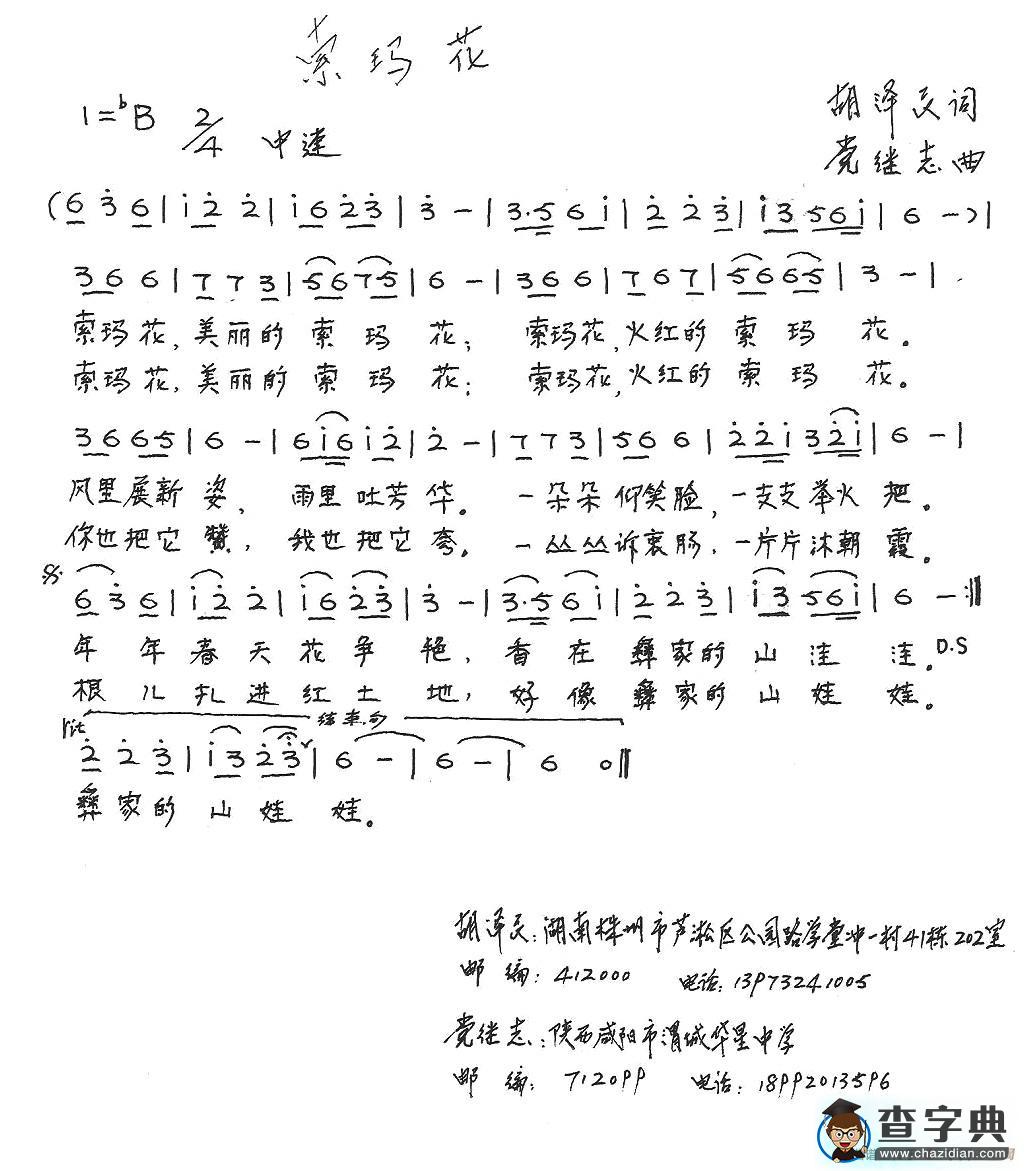 索玛花
1=ᵇB 2/4 中速
胡泽民词
党继志曲
(6 3̇ 6|i 2̇ 2̇|i 6 2̇ 3̇|3̇ -|3·5 6 i|2̇ 2̇ 3̇|i 3 5 6 i|6 -)|
3 6 6|7 7 3|5 6 7 5|6 -|3 6 6|7 6 7|5 6 6 5|3 -|
索玛花,美丽的索玛花; 索玛花,火红的索玛花。
索玛花,美丽的索玛花; 索玛花,火红的索玛花。
3 6 6 5|6 -|6 i 6 i 2̇|2̇ -|7 7 3|5 6 6|2̇ 2̇ i 3 2̇ i|6 -|
风里展新姿, 雨里吐芳华。 一朵朵仰笑脸,一支支举火把。
你也把它赞, 我也把它夸。 一丛丛诉衷肠,一片片沐朝霞。
6 3̇ 6|i 2̇ 2̇|i 6 2̇ 3̇|3̇ -|3·5 6 i|2̇ 2̇ 3̇|i 3 5 6 i|6 -:‖
年年春天花争艳,香在彝家的山洼洼。D.S
根儿扎进红土地,好像彝家的山娃娃。
rit 结束句
2̇ 2̇ 3̇|i 3 2̇ 3̇|6 -|6 -|6 0‖
彝家的山娃娃。
胡泽民:湖南株州市芦淞区公园路学堂冲一村41栋202室
邮编:412000 电话:13973241005
党继志:陕西咸阳市渭城华星中学
邮编:712099 电话:18992013596
查字典
www.chazidian.com